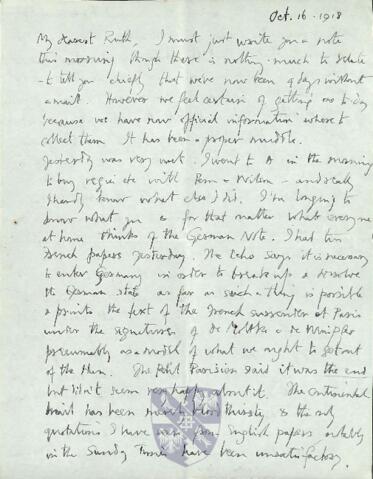 Oct. 16 - 1918
My dearest Ruth, I must just write you a note
this morning though there is nothing much to relate
- to tell you chiefly that we've now been 9 days without
a mail. However we feel certain of getting one to-day
because we have now official information where to
collect them. It has been a proper muddle.
Yesterday was very wet. I went to A in the morning
to buy with - and really
I hardly know what else I did. I'm longing to
know what you & for that matter what everyone
at home thinks of the German Note. I had two
French papers yesterday. The Echo says it is necessary
to enter Germany in order to break up & dissolve
the German state as far as such a thing is possible
& prints the text of the French surrender at Paris
under the signatures of de Moltke & de Wimpffen
presumably as a model of what we ought to get out
of the Hun. The Petit Parisien said it was the end
but didn't seem very happy about it. The Continental
Mail has been most bloodthirsty & the only
quotations I have seen from English papers notably
in the Sunday Times have been unsatisfactory.